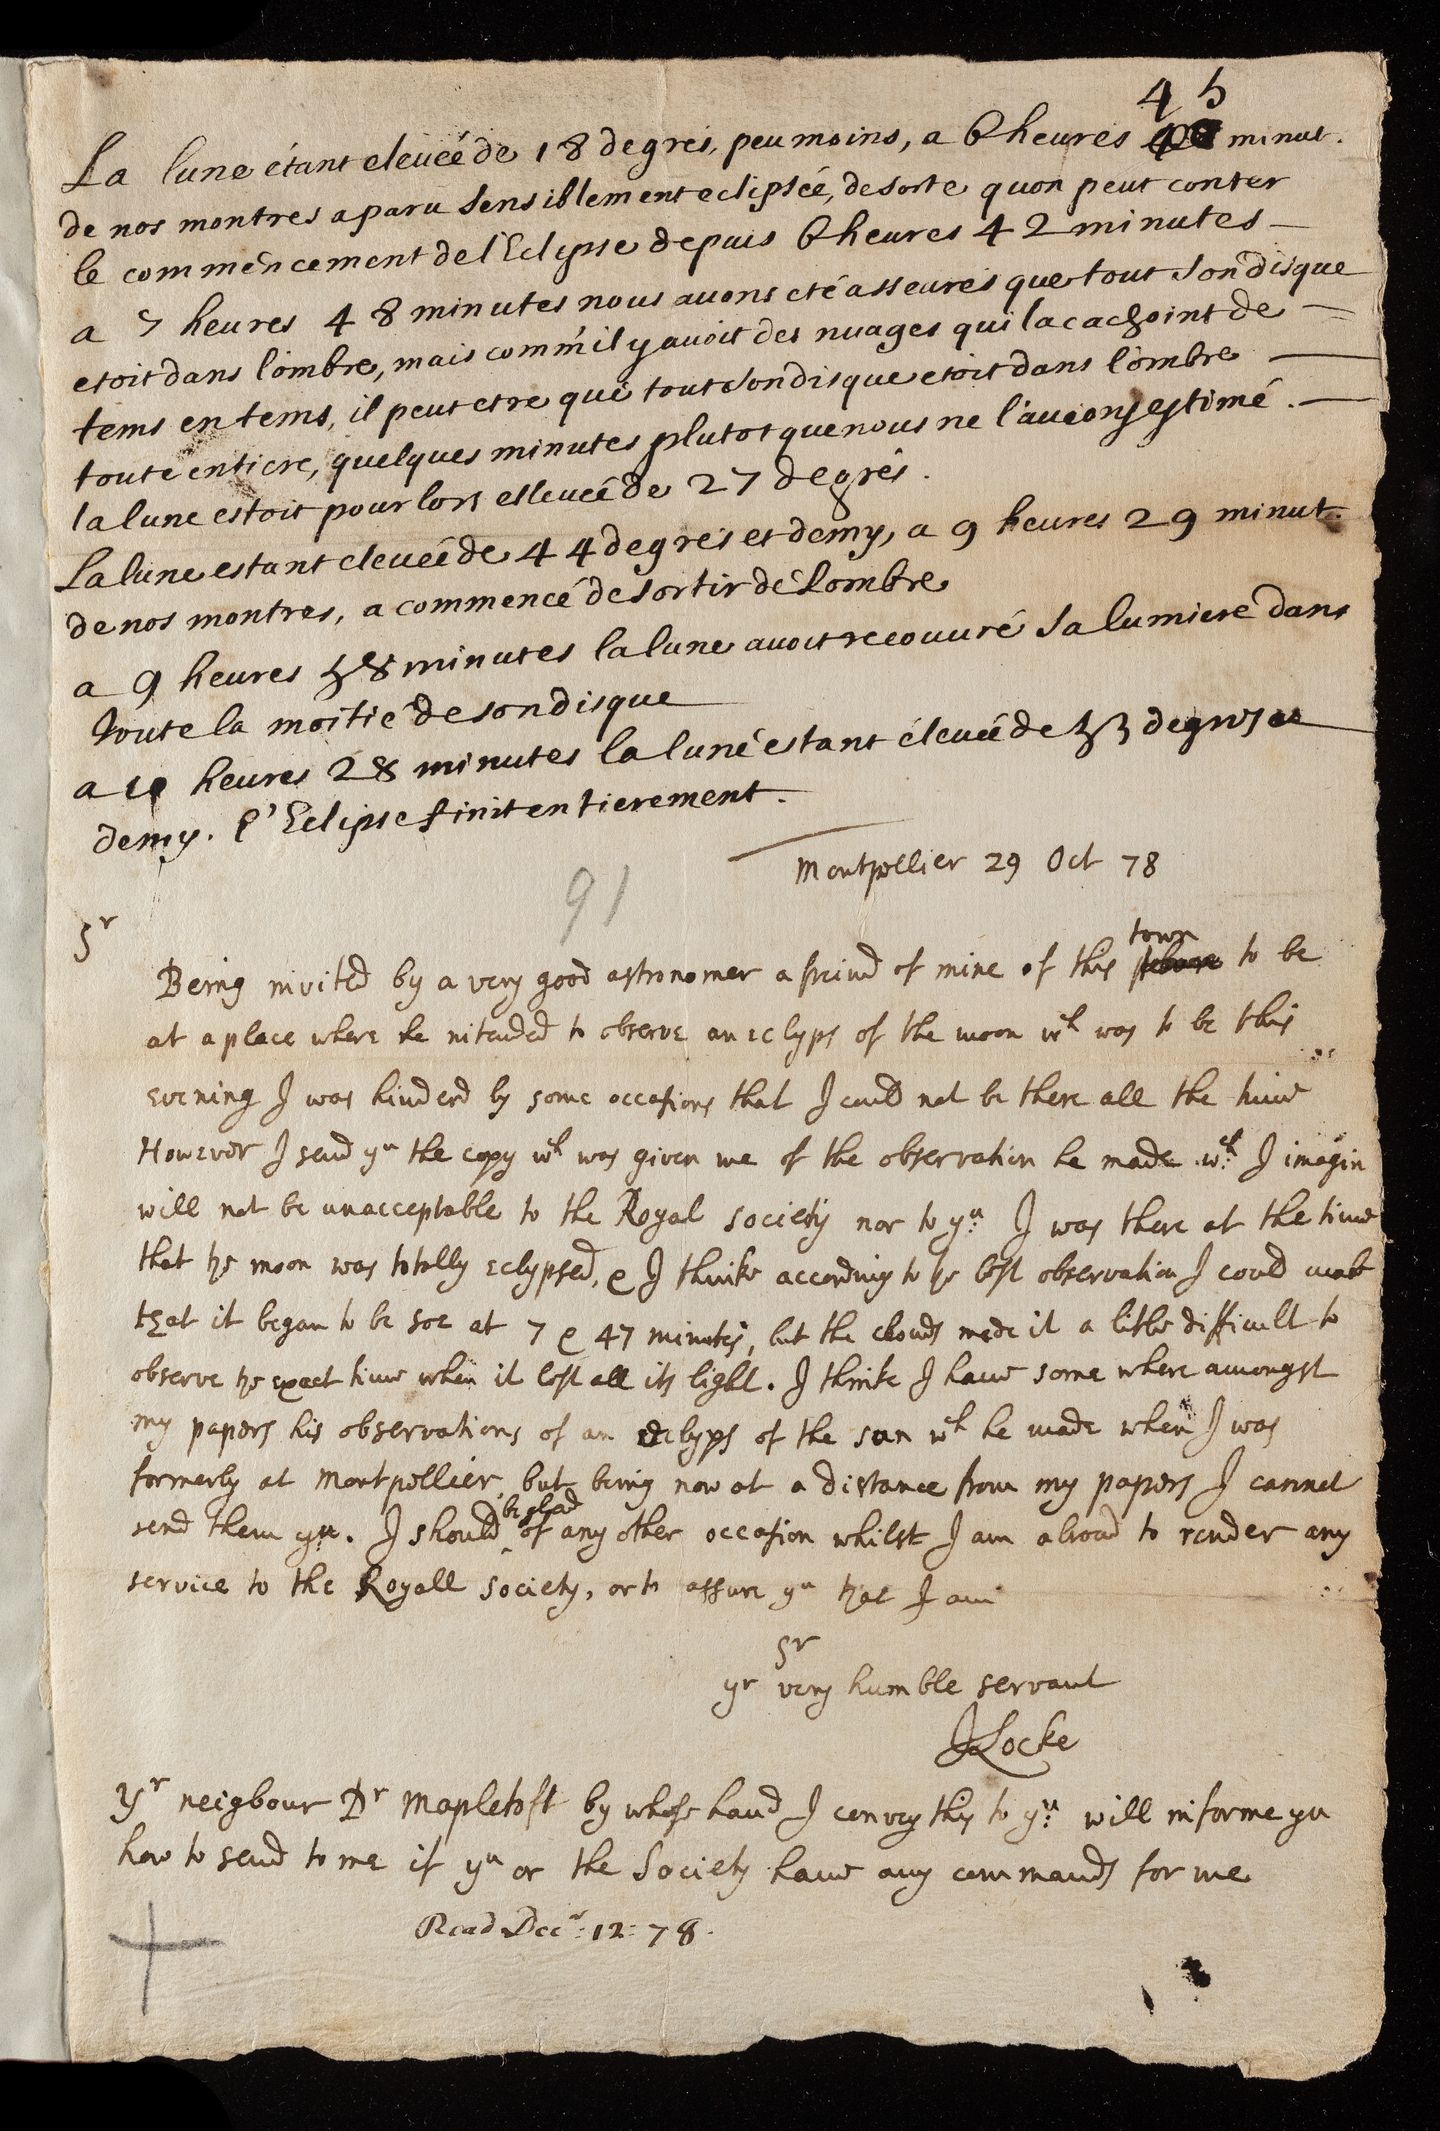 45
La lune étant eleueé de 18 degres, peu moins, a 6 heures minut.
de nos montres a paru sensiblement eclipsée, de sorte quon peut conter
le commencement de l'Eclipse depuis 6 heures 42 minutes
a 7 heures 48 minutes nous auons eté asseures que tout son disque
etoit dans l'ombre, mais comm'il y auoit des nuages qui la cachoint de
tems en tems, il peut etre que tout son disque etoit dans l'ombre
toute entiere, quelques minutes plutot que nous ne l'aueons estimé.
la lune estoit pour lors esleueé de 27 degrés.
La lune estant eleueé de 44 degres et demy, a 9 heures 29 minut.
de nos montres, a commencé de sortir de l'ombre
a 9 heures 58 minutes la lune auoit recouuré sa lumiere dans
toute la moitié de son disque
a 10 heures 28 minutes la lune estant éleueé de 53 degres et
demy. l'Eclipse finit entierement.
Montpellier 29 Oct 78
91
Sr
Being invited by a very good astronomer a freind of mine of this town to be
at a place where he intended to observe an eclyps of the moon wch was to be this
evening I was hinderd by some occasions that I could not be there all the time
However I send yu the copy wch was given me of the observation he made wch I imagin
will not be unacceptable to the Royal society nor to yu. I was there at the time
that ye moon was totally eclypsed, & I thinke according to ye best observation I could make
that it began to be soe at 7 & 47 minutes, but the clouds made it a litle difficult to
observe ye exact time when it lost all its light. I thinke I have some where amongst
my papers his observations of an eclyps of the sun wch he made when I was
formerly at Montpellier, but being now at a distance from my papers I cannot
send them yu. I should be glad of any other occasion whilst I am abroad to render any
service to the Royall Society, or to assure yu that I am
Sr
yr very humble servant
JLocke
Yr neigbour Dr Mapletoft by whose hand I convey this to yu will informe yu
how to send to me if yu or the Society have any commands for me
Read Decr: 12: 78.